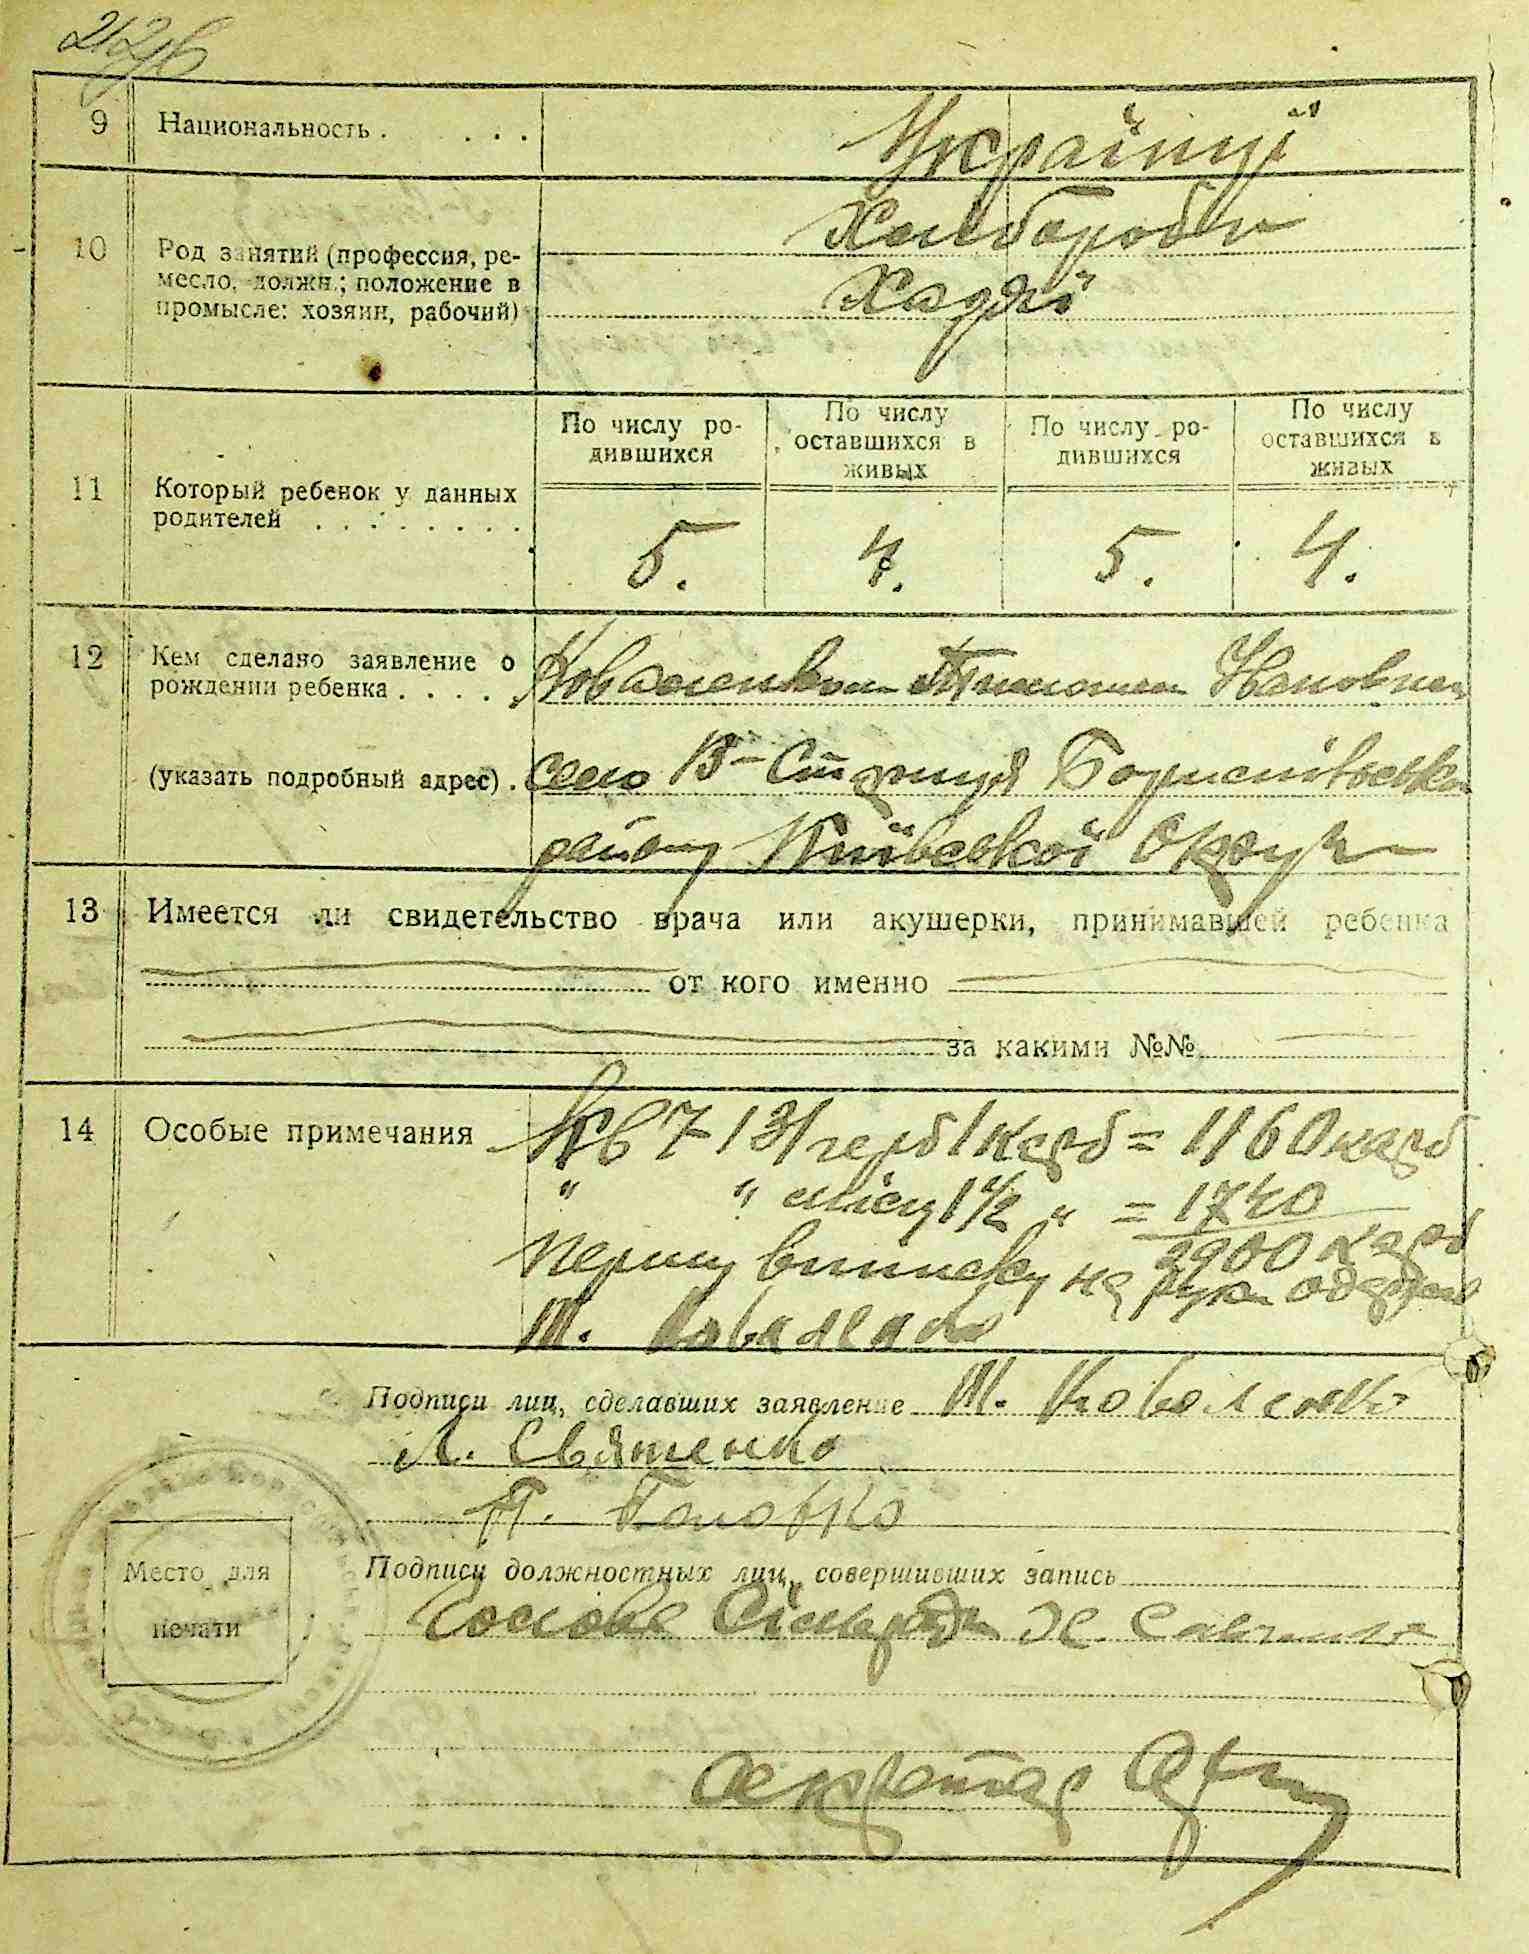 9 Национальность . . . . Українці
10 Род занятий (профессия, ре-
месло, должн.; положение в
промысле: хозяин, рабочий)
Хлібороби
Хазяї
11 Который ребенок у данных
родителей . . . . . . . .
По числу ро-
дившихся
По числу
оставшихся в
живых
По числу ро-
дившихся
По числу
оставшихся в
живых
5. 4. 5. 4.
12 Кем сделано заявление о
рождении ребенка . . . . Коваленком
(указать подробный адрес) . село В-Стариця Бориспівського
району Київської Округи
13 Имеется ли свидетельство врача или акушерки, принимавшей ребенка
от кого именно
за какими №№
14 Особые примечания
Кв 7 131 герб 1 карб = 1160 карб
" " місц 1 1/2 " = 1740
2900 карб
Першу виписку на руки одержав
Т. Коваленко
Подписи лиц, сделавших заявление Т. Коваленко
Л. Святенко
П. Головко
Место для
печати
Подписи должностных лиц, совершивших запись
Голова Сільради
Секретар